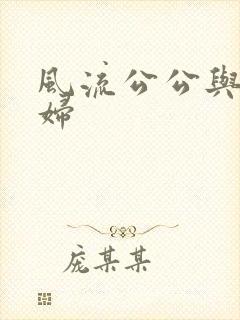 風流公公與
婦
庞某某